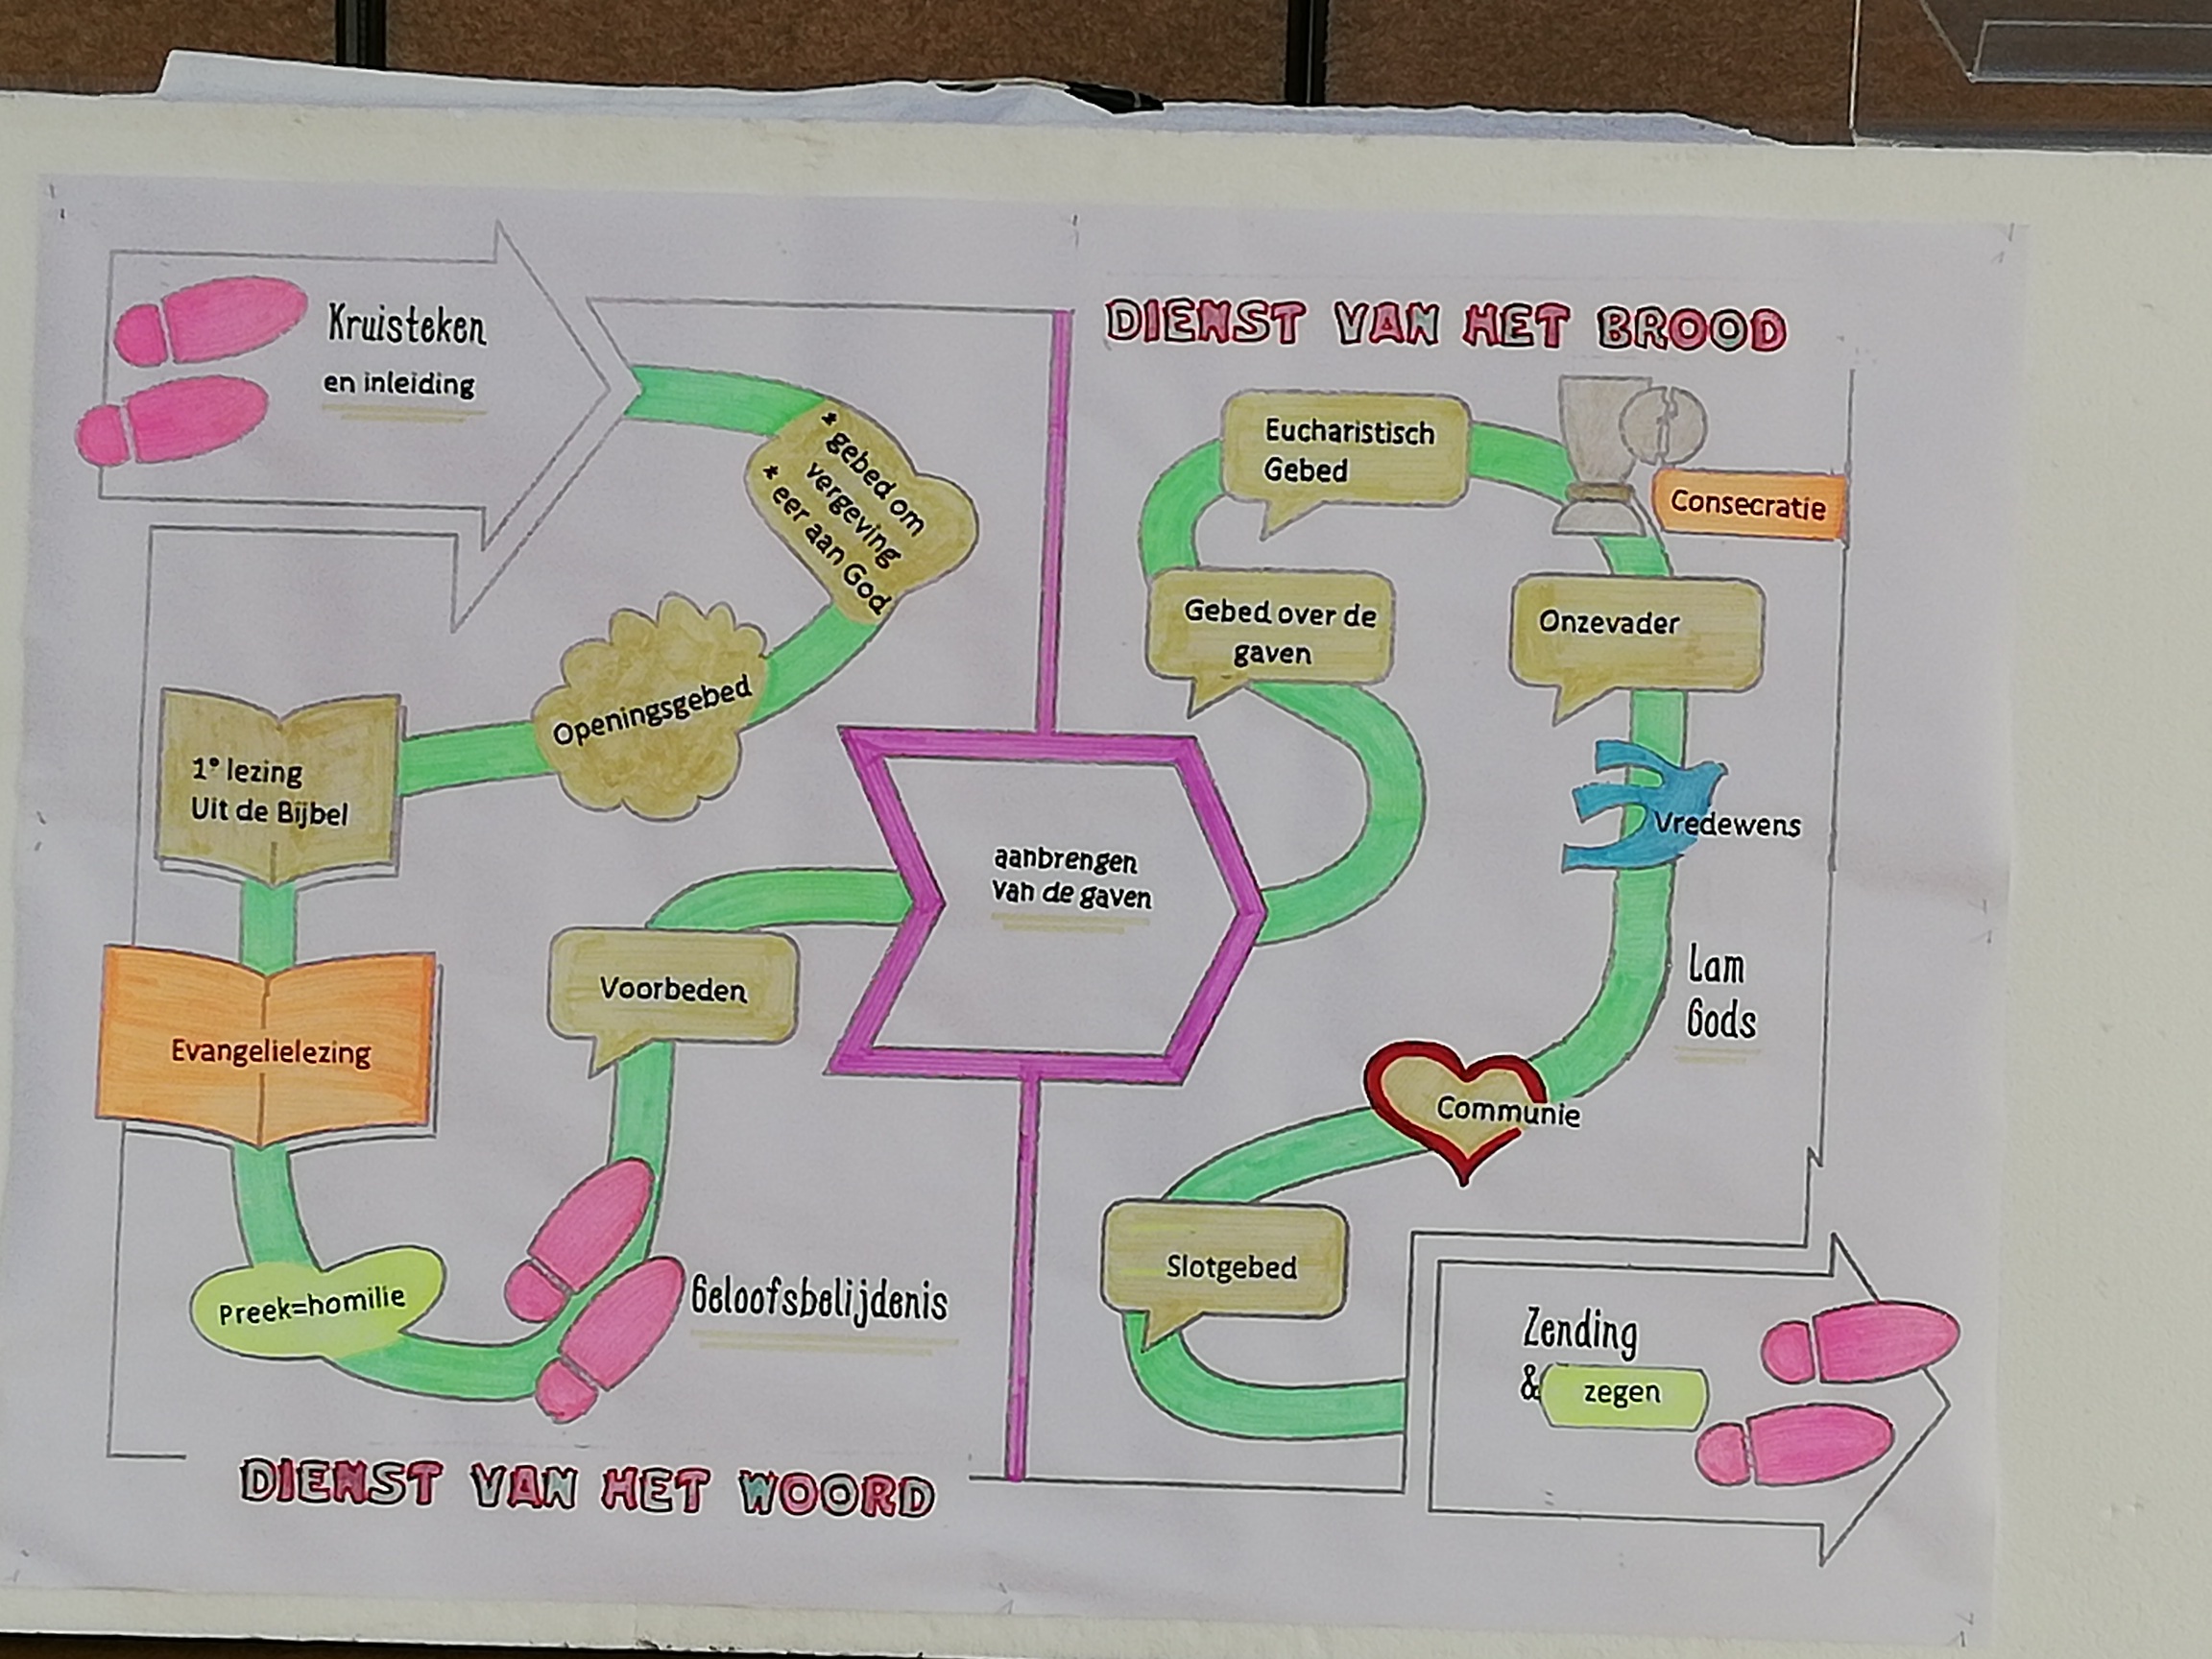 Kruisteken
en inleiding
* gebed om
vergeving
* eer aan God
Openingsgebed
1e lezing
Uit de Bijbel
Evangelielezing
Preek=homilie
Geloofsbelijdenis
Voorbeden
DIENST VAN HET WOORD
aanbrengen
van de gaven
DIENST VAN HET BROOD
Gebed over de
gaven
Eucharistisch
Gebed
Consecratie
Onzevader
Vredewens
Lam
Gods
Communie
Slotgebed
Zending
& zegen